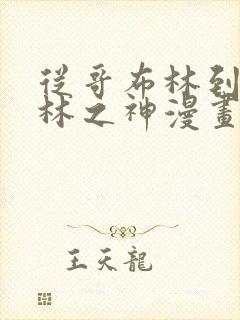 從哥布林到
林之神漫畫
王天龍